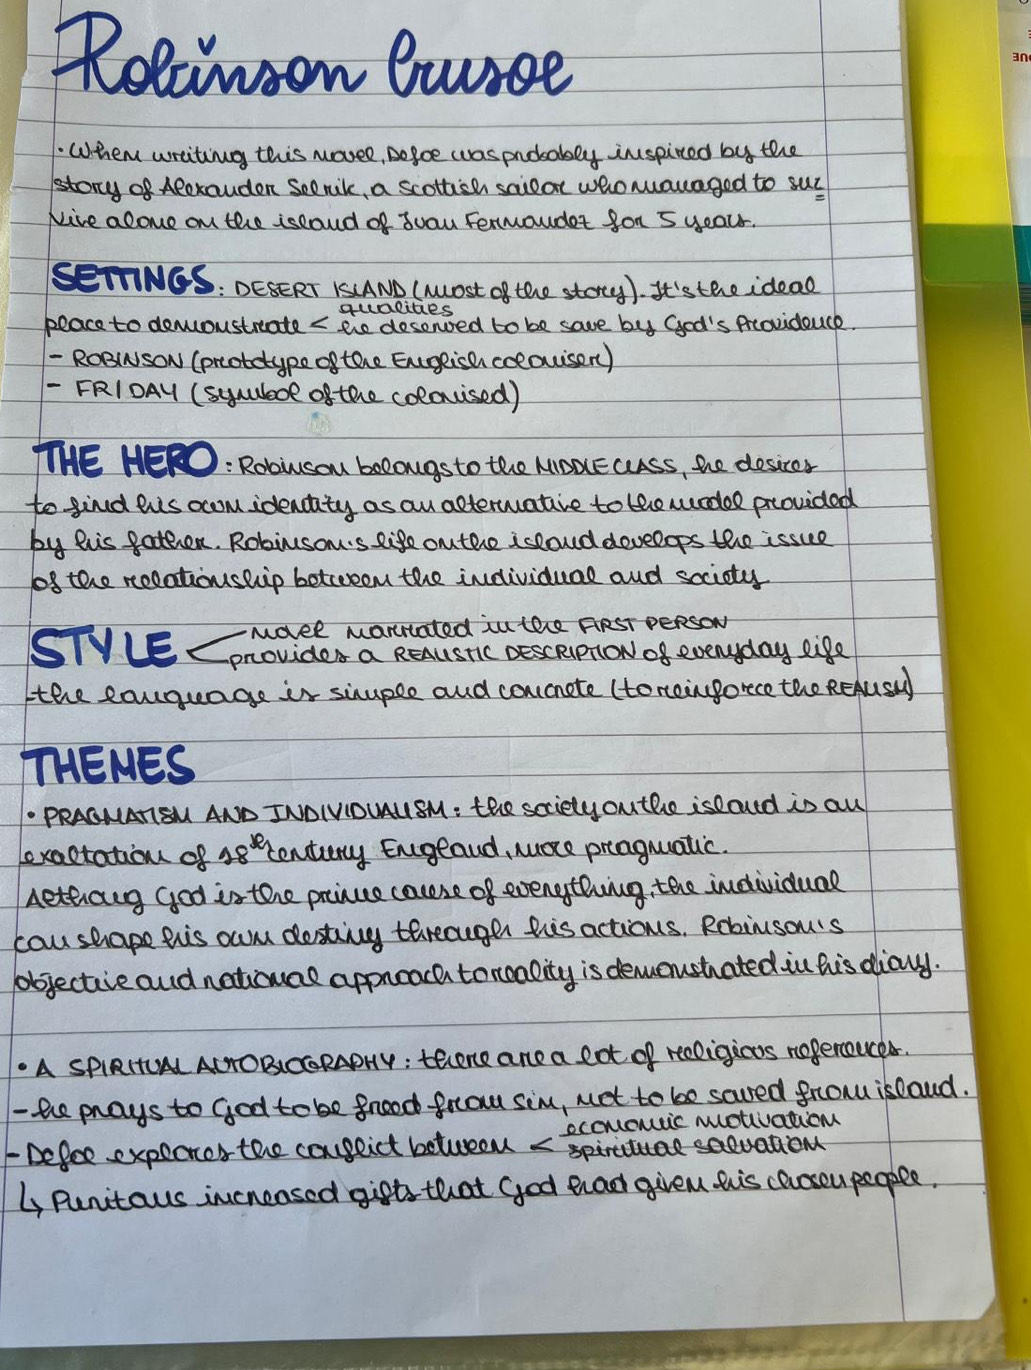 Robinson Crusoe
• When writing this novel, Defoe was probably inspired by the
story of Alexander Selrik, a Scottish sailor who managed to sur
vive alone on the island of Juan Fernandez for 5 years.
SETTINGS: DESERT ISLAND (most of the story). It's the ideal
place to demonstrate < qualities
he deserved to be save by God's Providence.
- ROBINSON (prototype of the English coloniser)
- FRIDAY (symbol of the colonised)
THE HERO: Robinson belongs to the MIDDLE CLASS, he desires
to find his own identity as an alternative to the model provided
by his father. Robinson's life on the island develops the issue
of the relationship between the individual and society
STYLE < novel narrated in the FIRST PERSON
provides a REALISTIC DESCRIPTION of everyday life
-the language is simple and concrete (to reinforce the REALISM)
THEMES
• PRAGMATISM AND INDIVIDUALISM: the society on the island is an
exaltation of 18th century England, more pragmatic.
Althoug God is the prime cause of everything, the individual
can shape his own destiny through his actions. Robinson's
objective and rational approach to reality is demonstrated in his diary.
• A SPIRITUAL AUTOBIOGRAPHY: there are a lot of religious references.
- he prays to God to be freed from sin, not to be saved from island.
- Defoe explores the conflict between < economic motivation
spiritual salvation
↳ Puritans increased gifts that God had given his chosen people.